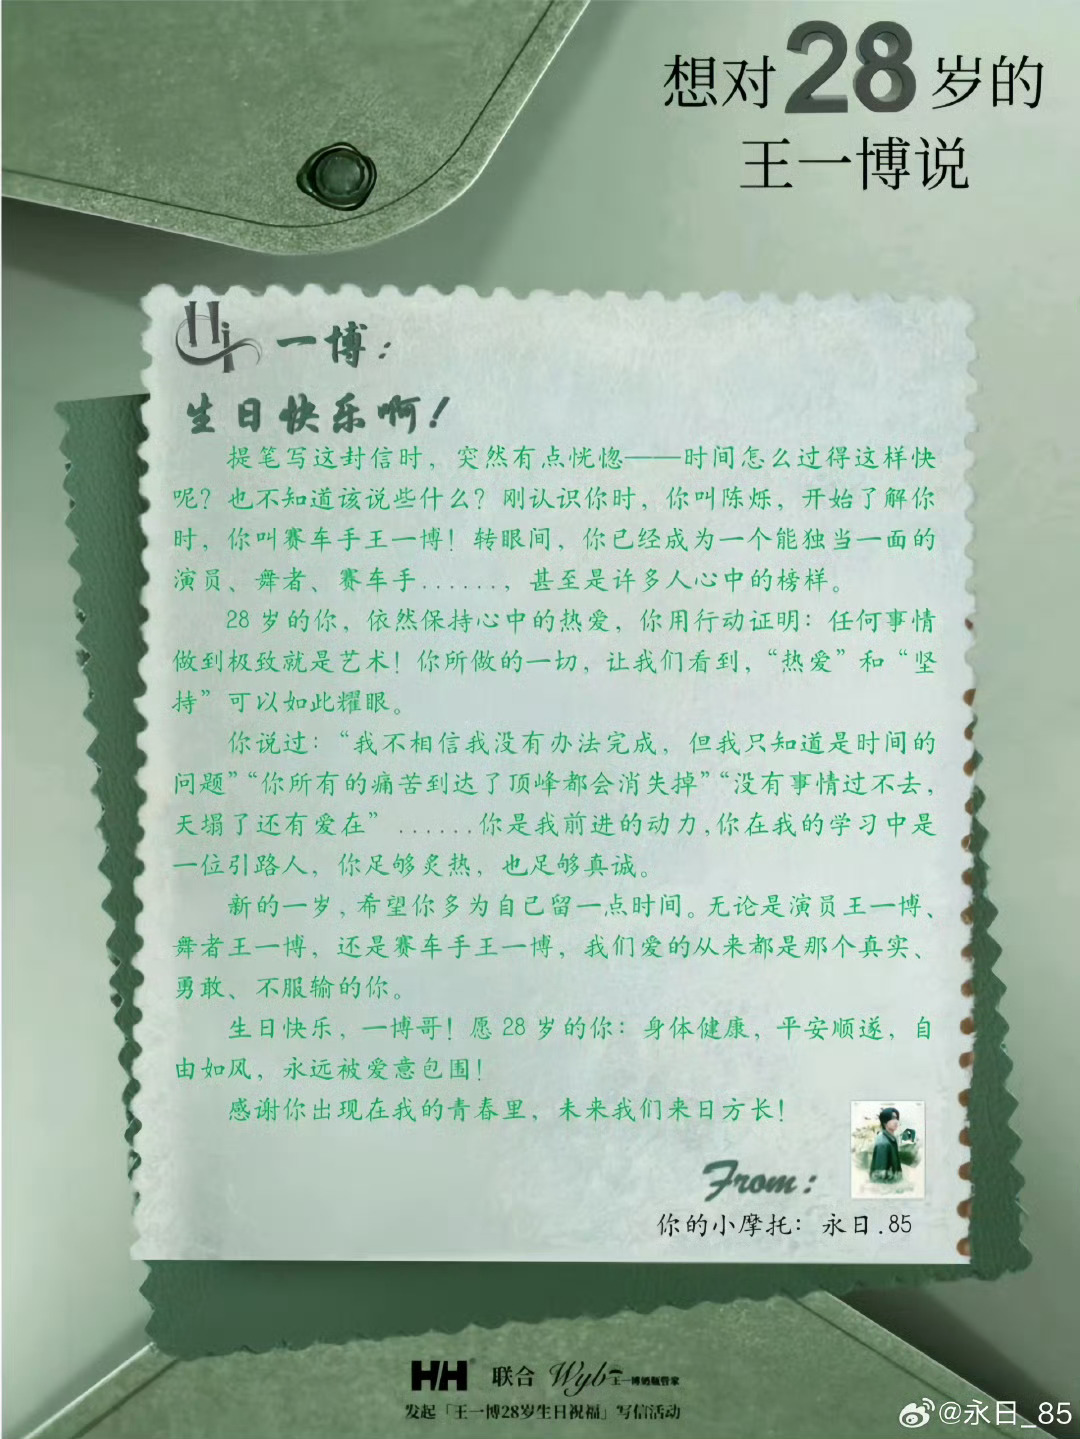 想对28岁的
王一博说
Hi 一博：
生日快乐啊！
提笔写这封信时，突然有点恍惚——时间怎么过得这样快
呢？也不知道该说些什么？刚认识你时，你叫陈烁，开始了解你
时，你叫赛车手王一博！转眼间，你已经成为一个能独当一面的
演员、舞者、赛车手.......，甚至是许多人心中的榜样。
28 岁的你，依然保持心中的热爱，你用行动证明：任何事情
做到极致就是艺术！你所做的一切，让我们看到，“热爱”和“坚
持”可以如此耀眼。
你说过：“我不相信我没有办法完成，但我只知道是时间的
问题”“你所有的痛苦到达了顶峰都会消失掉”“没有事情过不去，
天塌了还有爱在” ......你是我前进的动力,你在我的学习中是
一位引路人，你足够炙热，也足够真诚。
新的一岁，希望你多为自己留一点时间。无论是演员王一博、
舞者王一博，还是赛车手王一博，我们爱的从来都是那个真实、
勇敢、不服输的你。
生日快乐，一博哥！愿 28 岁的你：身体健康，平安顺遂，自
由如风，永远被爱意包围！
感谢你出现在我的青春里，未来我们来日方长！
From：
你的小摩托：永日.85
HH 联合 Wyb 王一博销瓶管家
发起「王一博28岁生日祝福」写信活动
@永日_85